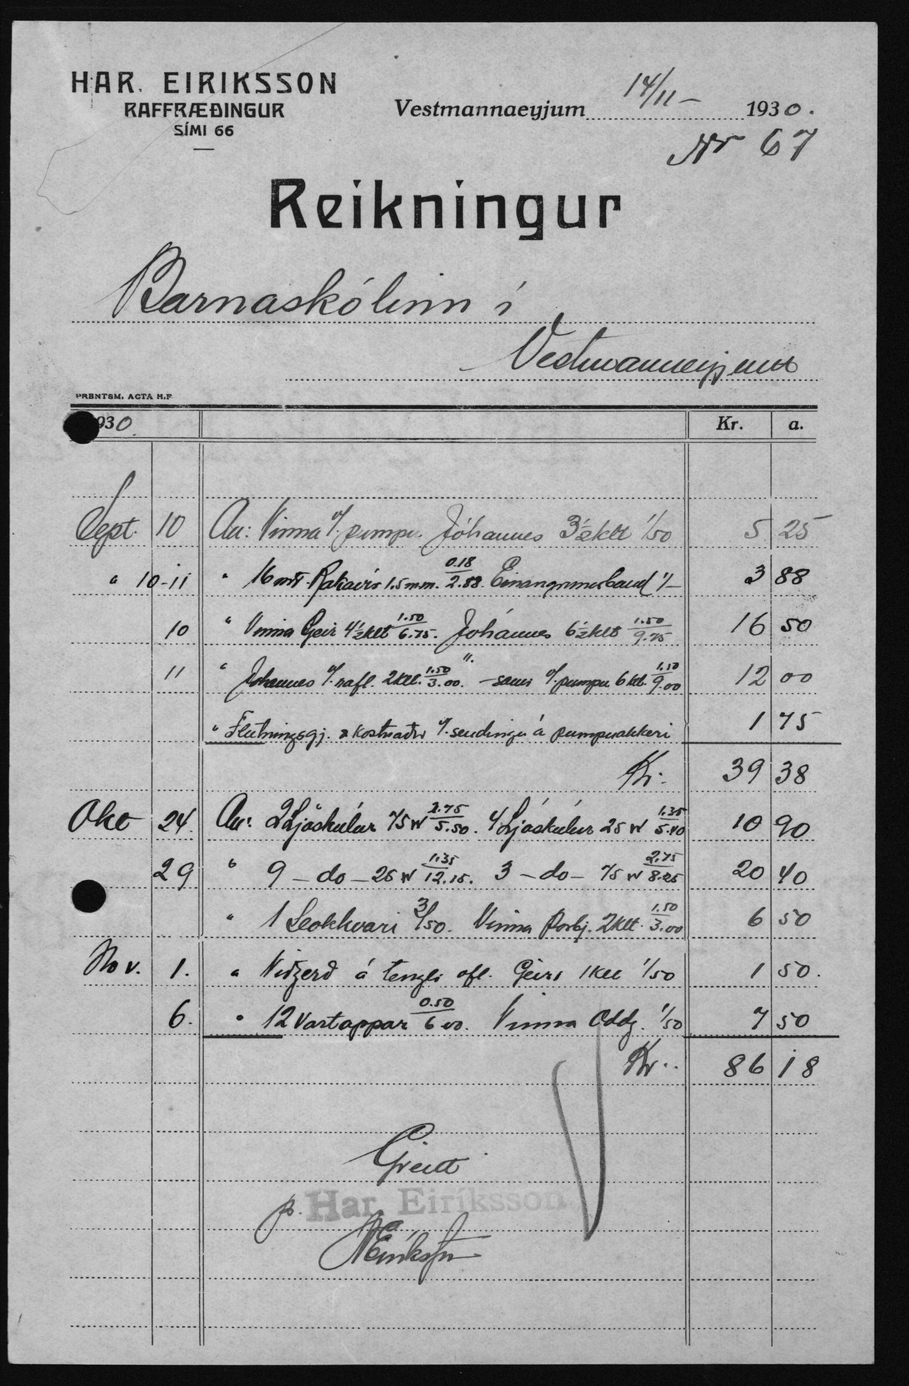 HAR. EIRIKSSON
RAFFRÆÐINGUR
SÍMI 66
Vestmannaeyjum 14/11- 1930.
Nr 67
Reikningur
Barnaskólinn í
Vestmannaeyjum
PRENTSM. ACTA H.F
1930. Kr. a.
Sept. 10 An: Vinna v/. pumpu Jóhannes 3½ klt 1/50 5 25
" 10-11 " 16 mtr 1.5 mm. 0.18/2.88. Einangrunarband 1/- 3 88
10 " Vinna Geir 4½ klt 1.50/6.75. Jóhannes 6½ klt 1.50/9.75 16 50
11 " Jóhannes v/. rafl. 2 klt. 1.50/3.00. ". - sami v/. pumpu 6 klt. 1.50/9.00 12 00
" Flutningsgj. & kostnaður v/. sendingu á 1 75
Kr. 39 38
Okt 24. An: 2 Ljóskúlur 75 W 2.75/5.50. 4 Ljóskúlur 25 W 1.35/5.40 10 90
29 " 9 - do - 25 W 1.35/12.15. 3 - do - 75 W 2.75/8.25 20 40
" 1 3/50. Vinna Þorbj. 2 klt. 1.50/3.00 6 50
Nov. 1. " Viðgerð á tengli ofl. Geir 1 klt 1/50 1 50.
6. " 12 Vartappar 0.50/6.00. Vinna Oddg 1/50 7 50
Kr.. 86 18
Greitt
p. Har. Eiríksson